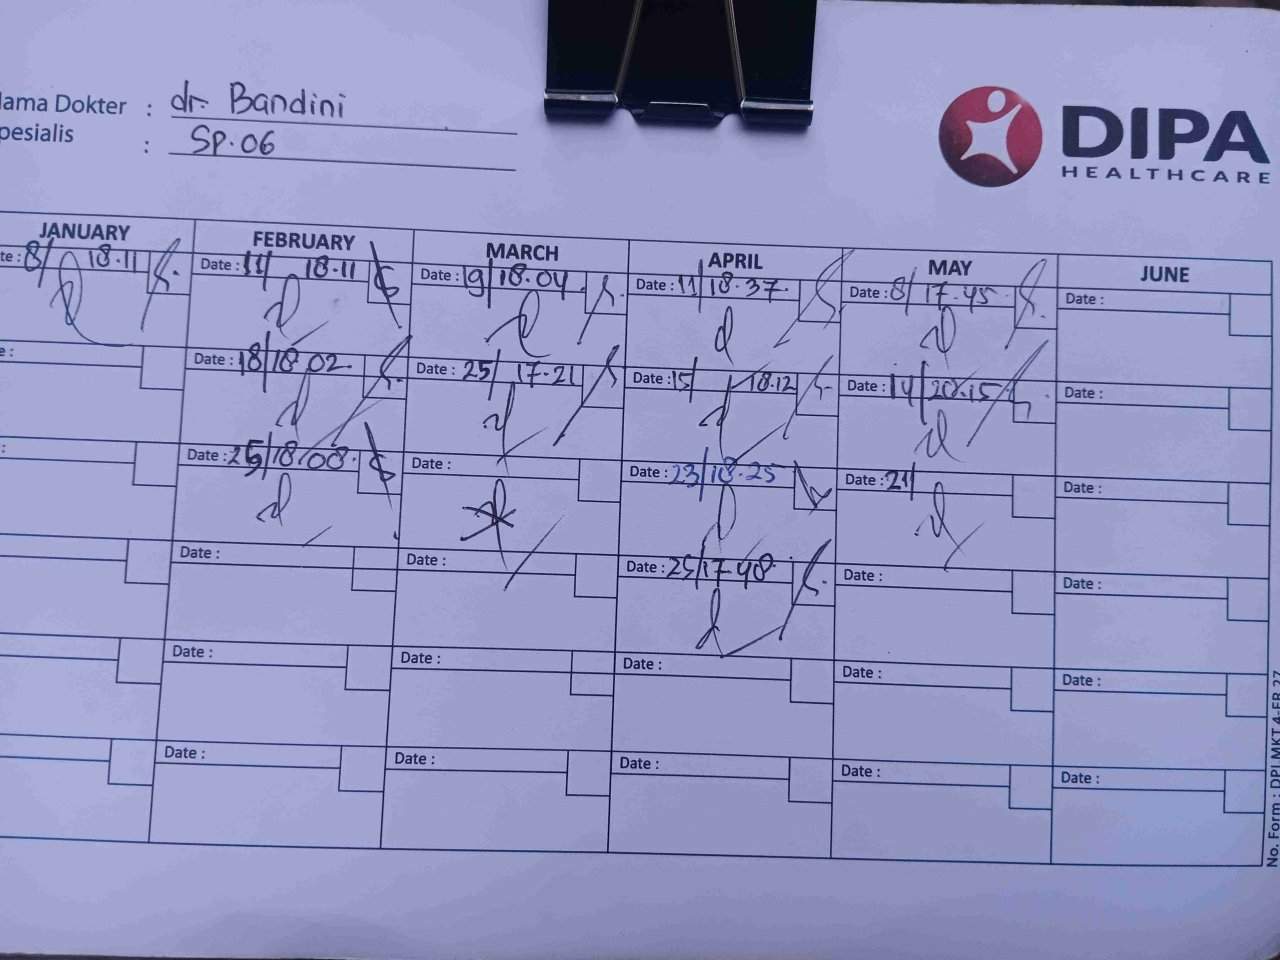 ama Dokter : dr. Bandini
pesialis : SP.OG
DIPA
HEALTHCARE
JANUARY FEBRUARY MARCH APRIL MAY JUNE
te: 8/ 18.11 Date: 11/ 18.11 Date: 19/18.04 Date: 11/18.37. Date: 8/ 17.45 Date :
e: Date: 18/18.02 Date: 25/ 17.21 Date: 15/ 18.12 Date: 14/20.15 Date :
: Date: 25/18.08 Date : Date: 23/18.25 Date: 21/ Date :
Date : Date : Date: 25/17.48 Date : Date :
Date : Date : Date : Date : Date :
Date : Date : Date : Date : Date :
No. Form : DPI.MKT.4-FR.27